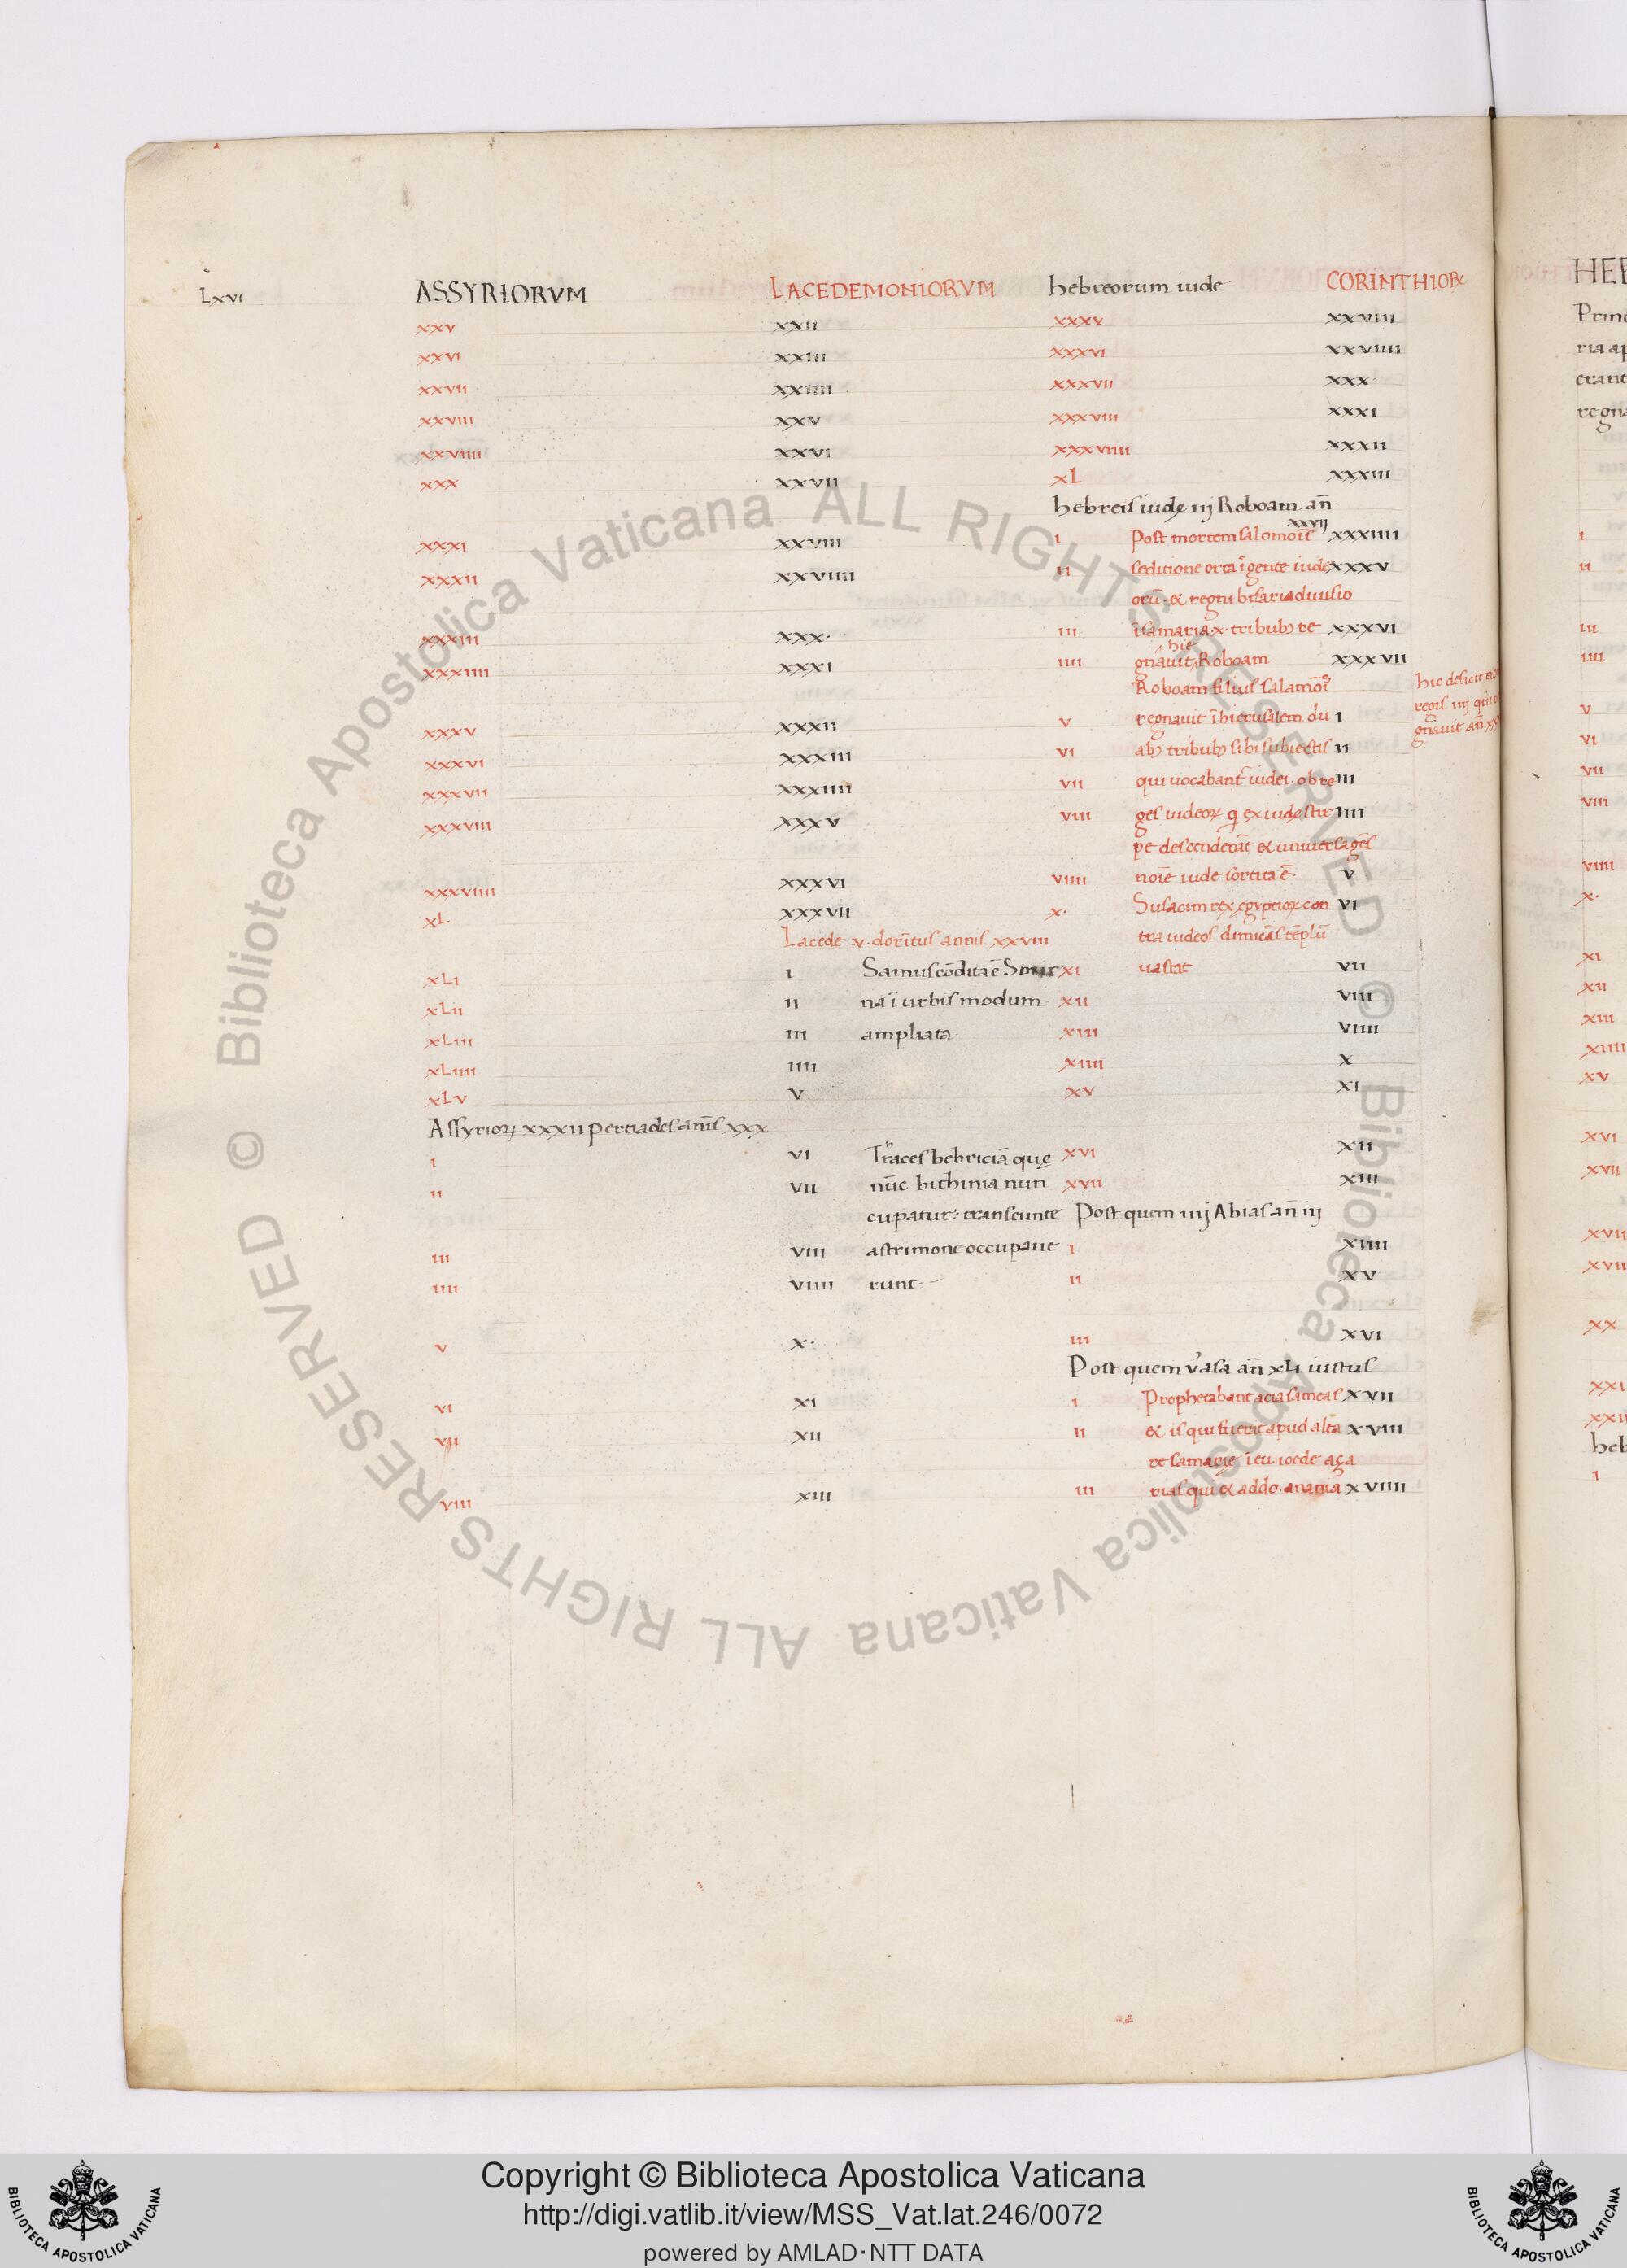 Lxvi ASSYRIORVM LACEDEMONIORVM hebreorum iude CORINTHIOR
xxv xxii xxxv xxviii
xxvi xxiii xxxvi xxviiii
xxvii xxiiii xxxvii xxx
xxviii xxv xxxviii xxxi
xxviiii xxvi xxxviiii xxxii
xxx xxvii xL xxxiii
hebreis iudę iij Roboam an̄
xxxi xxviii i Post mortem salomoīs xxxiiii
xxxvij
xxxii xxviiii ii seditione orta ī gente iude xxxv
orū · & regnu bifaria diuisio
xxxiii xxx· iii ī samaria ·x· tribubꝫ re xxxvi
hie
xxxiiii xxxi iiii gnāuit Roboam xxxvii
Roboam filius salamōis
hic deficit
regis iiij
gnāuit an̄
xxxv xxxii v regnauit ī hierusalem du i
xxxvi xxxiii vi abꝫ tribubꝫ sibi subiectis ii
xxxvii xxxiiii vii qui uocabant̄ iudei · ob re iii
xxxviii xxxv viii ges iudeoꝝ q̄ ex iude stir iiii
pe descenderāt & uniuersa gēs
xxxviiii xxxvi viiii noīe iude sortita ē· v
xL xxxvii x· Susacim rex egyptioꝝ con vi
Lacede v· doritus annis xxviii tra iudeos dimicās tēplū
xLi i Samus cōdita ē Smir xi uastat vii
xLii ii na ī urbis modum xii viii
xLiii iii ampliata xiii viiii
xLiiii iiii xiiii x
xLv v xv xi
Assyrioꝝ xxxii pertiades annis xxx
i vi Thraces bebriciā quę xvi xii
ii vii nūc bithinia nun xvii xiii
cupatur: transeunte Post quem iiij Abias an̄ iij
iii viii astrimone occupaue i xiiii
iiii viiii runt· ii xv
v x· iii xvi
Post quem v asa an̄ xLi iustus
vi xi i Prophetabant acia sameas xvii
vii xii ii & is qui fuerit apud altā xviii
re samarię ieu · ioede aça
viii xiii iii rias qui & addo · anania xviiii
HEB
Prin
ria ap
erant
regna
i
ii
iii
iiii
v
vi
vii
viii
viiii
x·
xi
xii
xiii
xiiii
xv
xvi
xvii
xvii
xvii
xx
xxi
xxii
heb
i
© Biblioteca Apostolica Vaticana ALL RIGHTS RESERVED
© Biblioteca Apostolica Vaticana ALL RIGHTS RESERVED
Copyright © Biblioteca Apostolica Vaticana
http://digi.vatlib.it/view/MSS_Vat.lat.246/0072
powered by AMLAD·NTT DATA
BIBLIOTECA APOSTOLICA VATICANA
BIBLIOTECA APOSTOLICA VATICANA